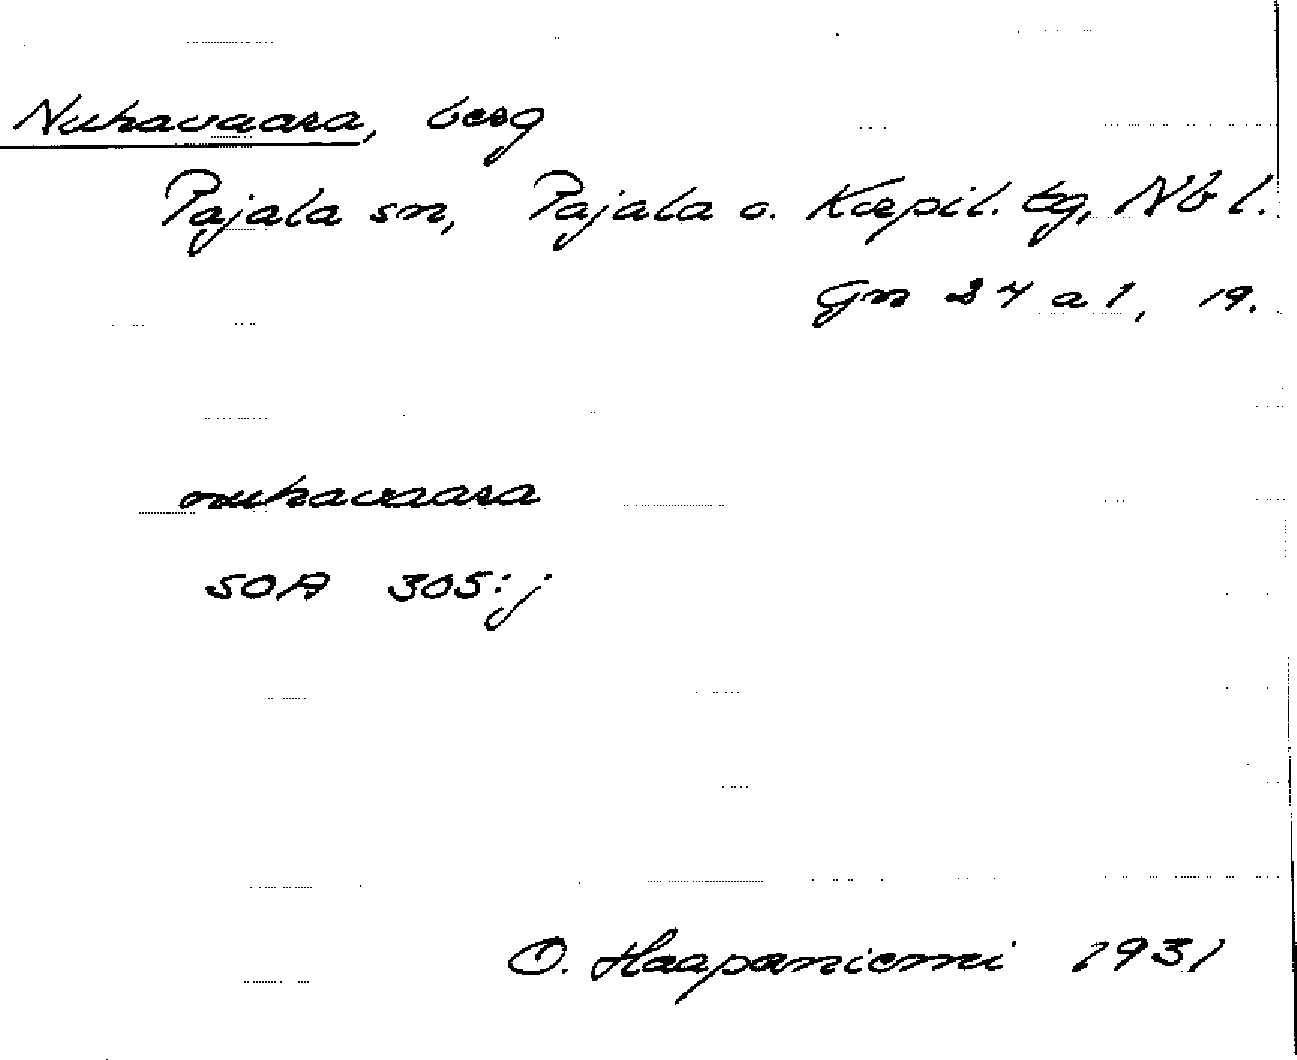 Nuhavaara, berg
Pajala sn, Pajala o. Korpil. tg, Nb l.
Gn 24 a 1, 19.
nuhavaara
SOA 305:j
O. Haapaniemi 1931